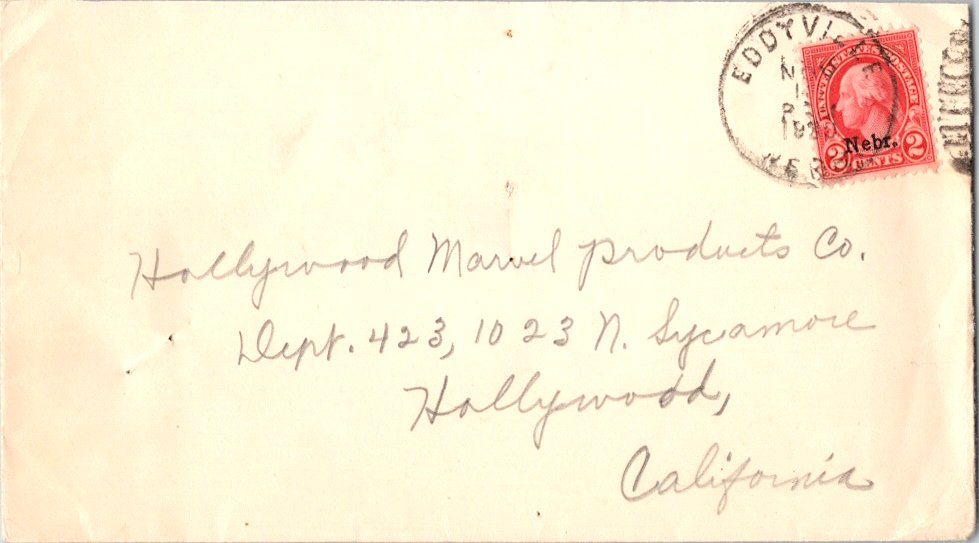 EDDYVILLE
1930
NEBR.
UNITED STATES POSTAGE
Nebr.
2 CENTS 2
Hollywood Marvel Products Co.
Dept. 423, 1023 N. Sycamore
Hollywood,
California